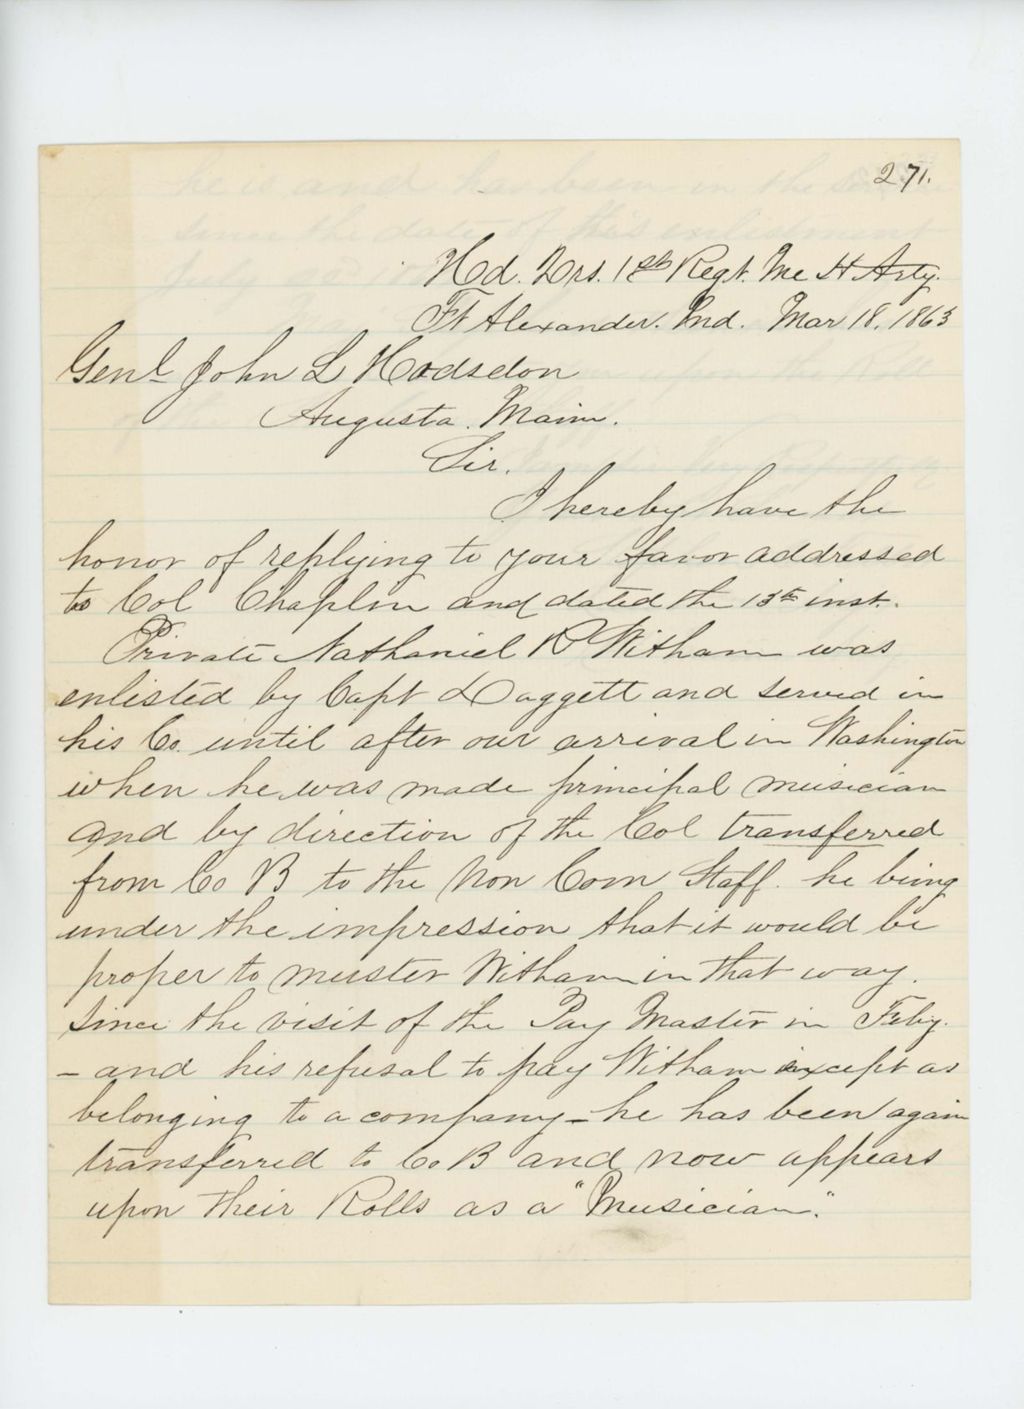 271.
Hd. Qrs. 1st Regt. Me H Arty.
Ft Alexander. Md. Mar 18. 1863
Genl John L Hodsdon
Augusta. Maine.
Sir.
I hereby have the
honor of replying to your favor addressed
to Col Chaplin and dated the 13th inst.
Private Nathaniel R Witham was
enlisted by Capt Daggett and served in
his Co. until after our arrival in Washington
when he was made principal musician
and by direction of the Col transferred
from Co B to the Non Com Staff. he being
under the impression that it would be
proper to muster Witham in that way.
Since the visit of the Pay Master in Feby.
- and his refusal to pay Witham except as
belonging to a company - he has been again
transferred to Co B and now appears
upon their Rolls as a "Musician."